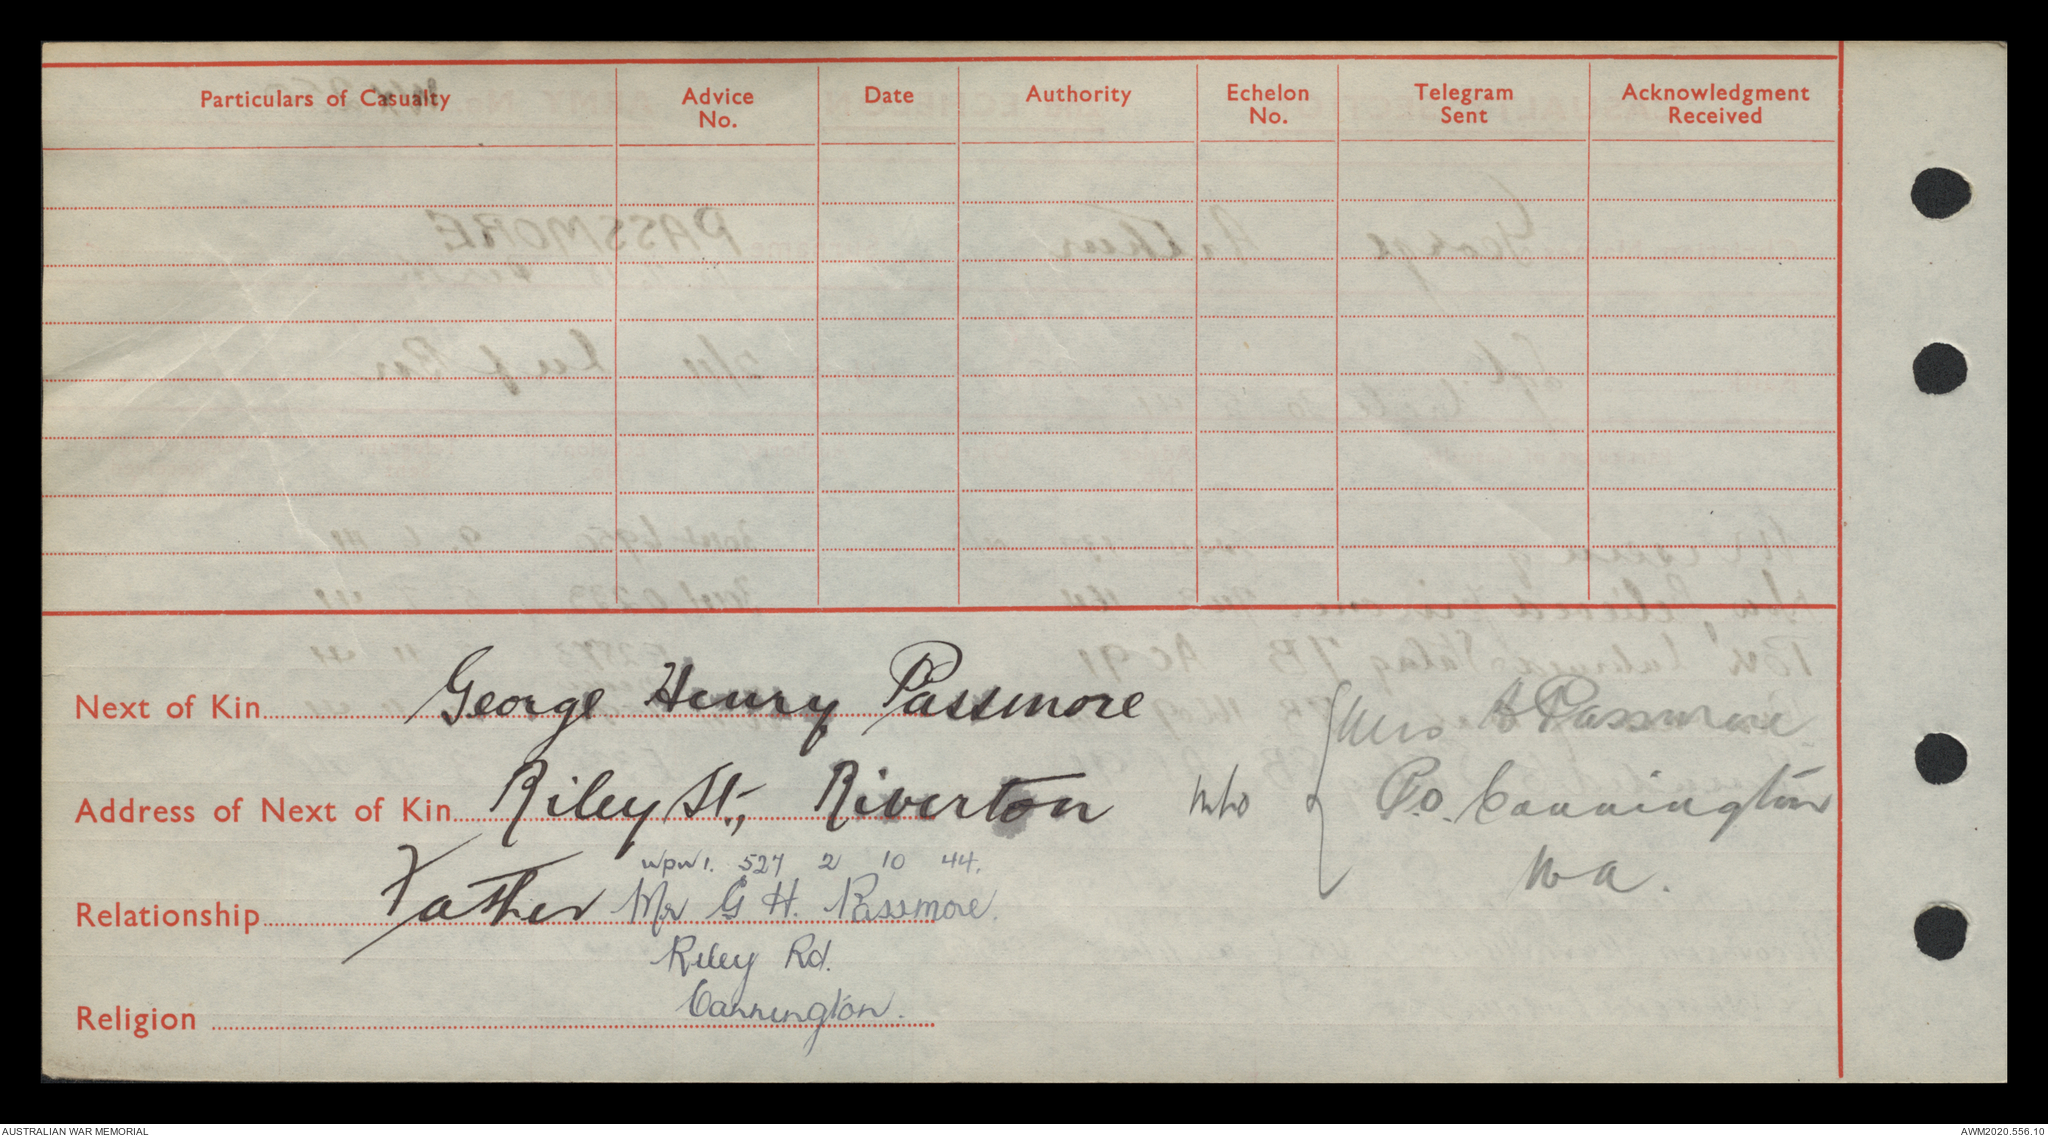 Particulars of Casualty
Advice No.
Date
Authority
Echelon No.
Telegram Sent
Acknowledgment Received
Next of Kin George Henry Passmore
Address of Next of Kin Riley St., Riverton
Mrs Passmore
P.O. Cannington
W A.
wpw1. 527 2 10 44.
Relationship Father Mr G H. Passmore.
Riley Rd.
Religion Cannington.
AUSTRALIAN WAR MEMORIAL
AWM2020.556.10